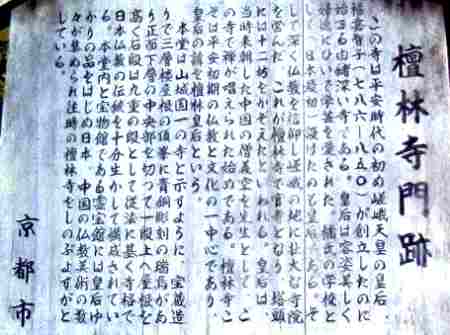 檀林寺門跡
この寺は平安時代の初め嵯峨天皇の皇后、
橘嘉智子(七八六-八五〇)が創立したのに
始まる由緒深い寺である。皇后は容姿美しく
婦徳にひいで学芸を愛された。橘氏の学校と
して(日本最初)設けたのも皇后である。そ
して深く仏教を信仰し嵯峨の地に壮大な寺院
を営んだ。これが檀林寺で官寺となり、塔頭
には十二坊をかぞえたといわれる。皇后は、
当時来朝した中国の僧義空を先生として、こ
の寺で禅が唱えられた始めである。檀林寺こ
そは平安初期の仏教と文化の一中心であり、
皇后の諱を檀林皇后という。
本堂は山城国一の寺と示すように、宝蔵造
りで三層楼屋根の頂峯に青銅彫刻の瑞鳥があ
り正面下層の中央部を切つて一段上へ屋根を
高く石段は九重の段として従法に基く寺格で
日本仏教の伝統を十分生かして構成されてい
る。本堂内と宝物館である霊宝館には皇后ゆ
かりの品をはじめ日本、中国の仏教美術の数
々が集められ往時の檀林寺をしのぶよすがと
している。
京都市